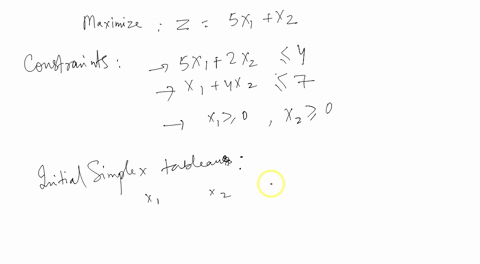 Maximize : Z = 5x₁ + x₂
Constraints : → 5x₁ + 2x₂ ≤ 4
→ x₁ + 4x₂ ≤ 7
→ x₁ ≥ 0 , x₂ ≥ 0
Initial Simplex tableau :
x₁ x₂